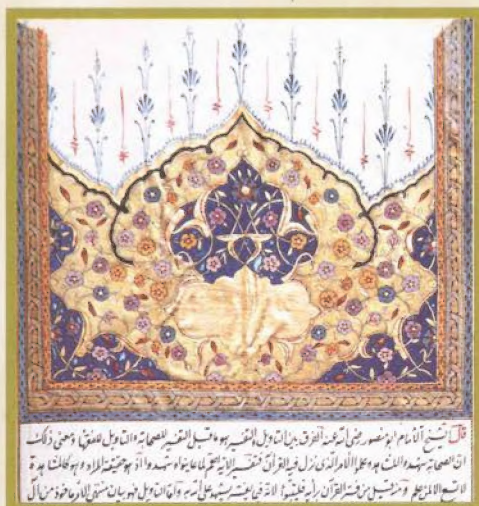 قال الشيخ الامام ابو منصور رضي الله عنه الفرق بين التاويل والتفسير هو ما قيل التفسير للصحابة والتاويل للفقهاء ومعنى ذلك
ان الصحابة شهدوا المشاهد وعلموا الامر الذي نزل فيه القرآن فتفسير الاية لما عاينوا وشهدوا اذ هو حقيقة المراد وهو كالمشاهدة
الا لمن علم ومنه قيل من فسر القرآن برأيه لانه يشهد على الله به واما التاويل فهو بيان منتهى الامر ماخوذ من آل